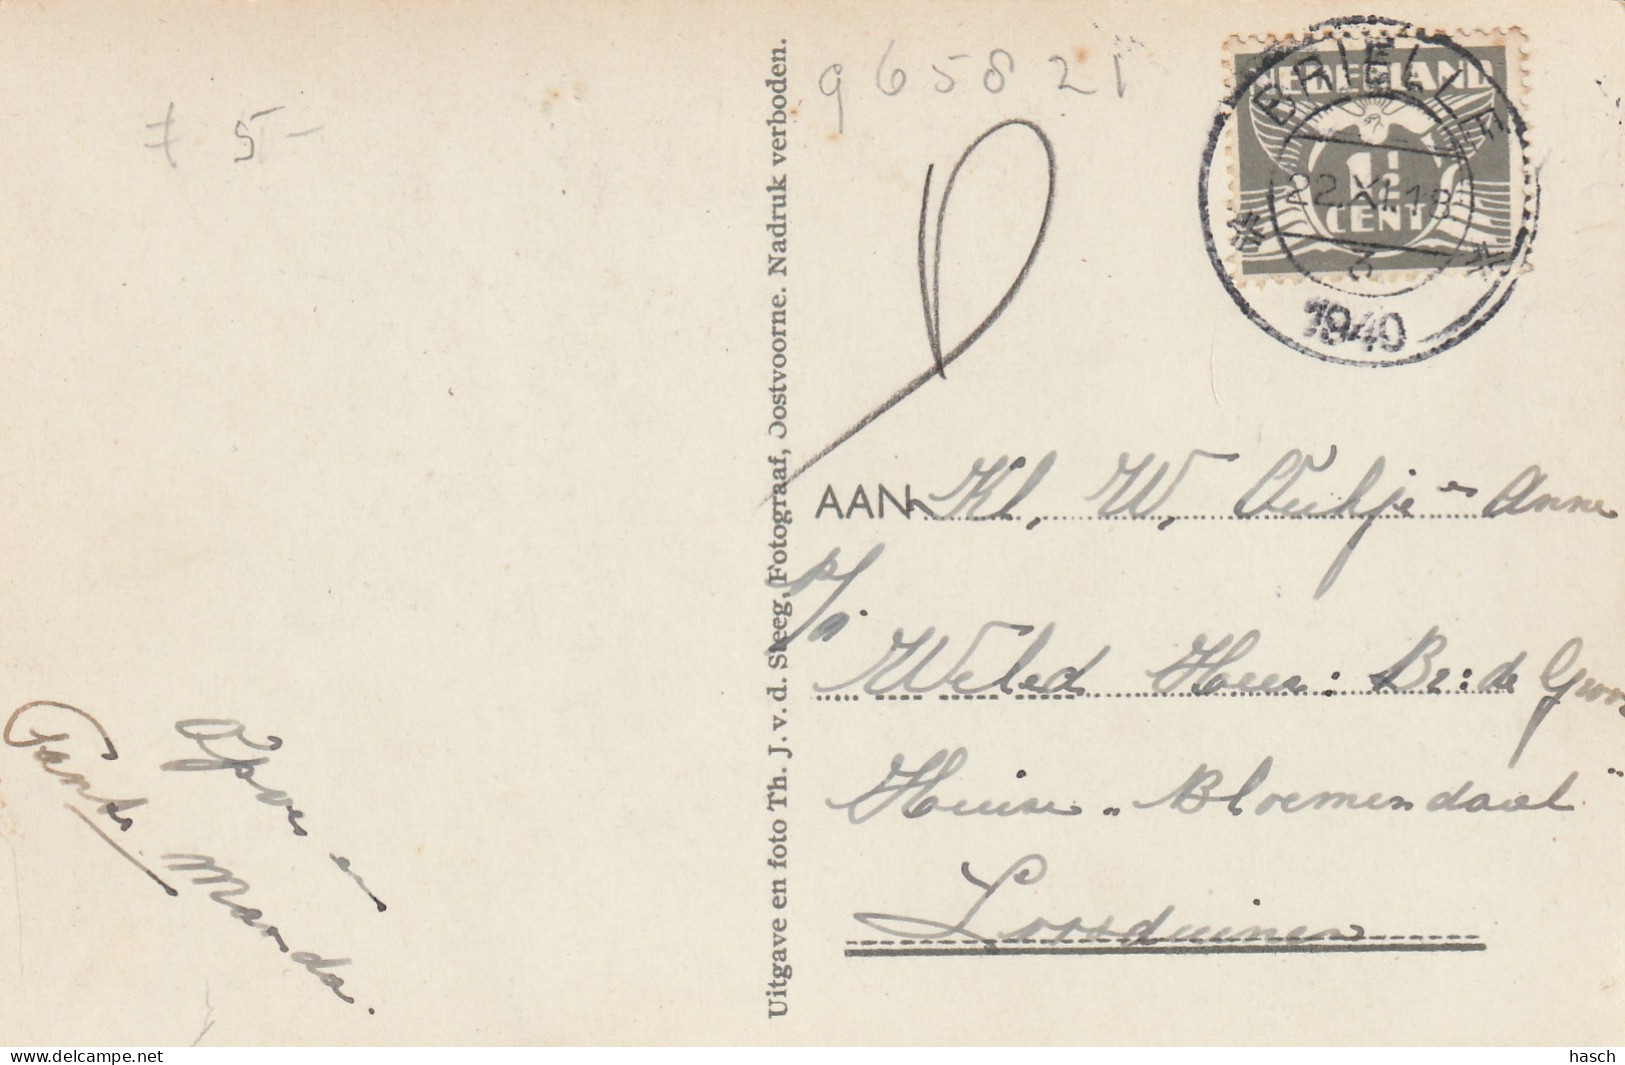 965821
f 5-
NEDERLAND
1½
CENT
BRIELLE
22.XI.18
3
1940
Uitgave en foto Th. J. v. d. Steeg, Fotograaf, Oostvoorne. Nadruk verboden.
AAN Kl, W, - Anne
p/a
Weled Heer: Br: de Groo
Huize „ Bloemendaal "
Loosduinen
en
Tante Marda.
www.delcampe.net
hasch